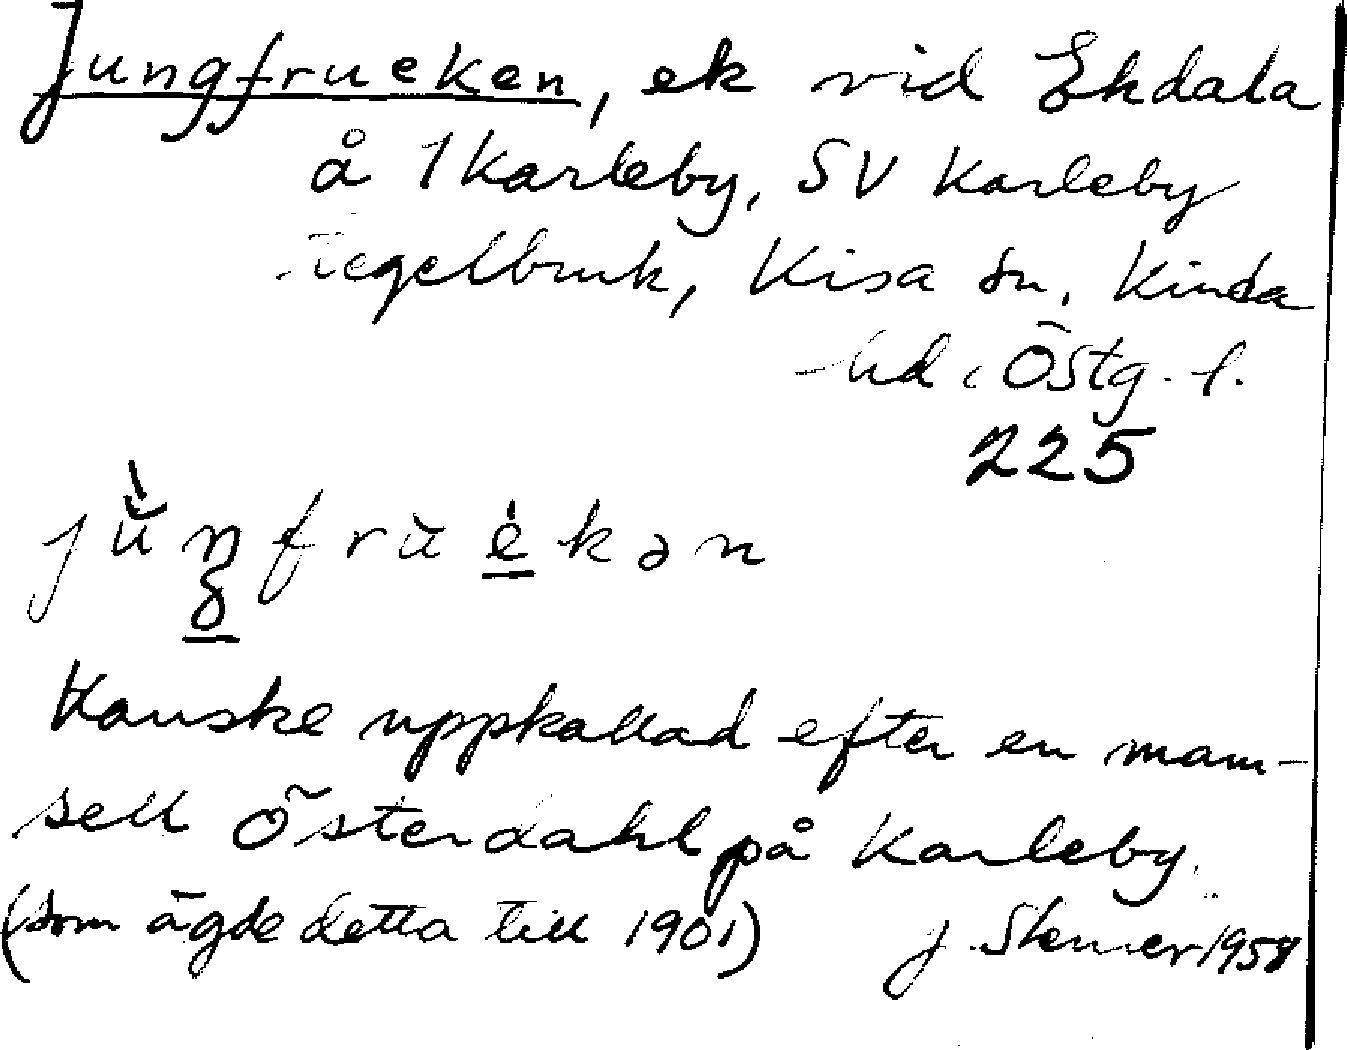 Jungfrueken, ek vid Ekdala
å 1 Karleby, SV Karleby
tegelbruk, Kisa sn, Kinda
hd, Östg. l.
225
Kanske uppkallad efter en mam-
sell Österdahl på Karleby.
(som ägde detta till 1901) J. Stenner 1958